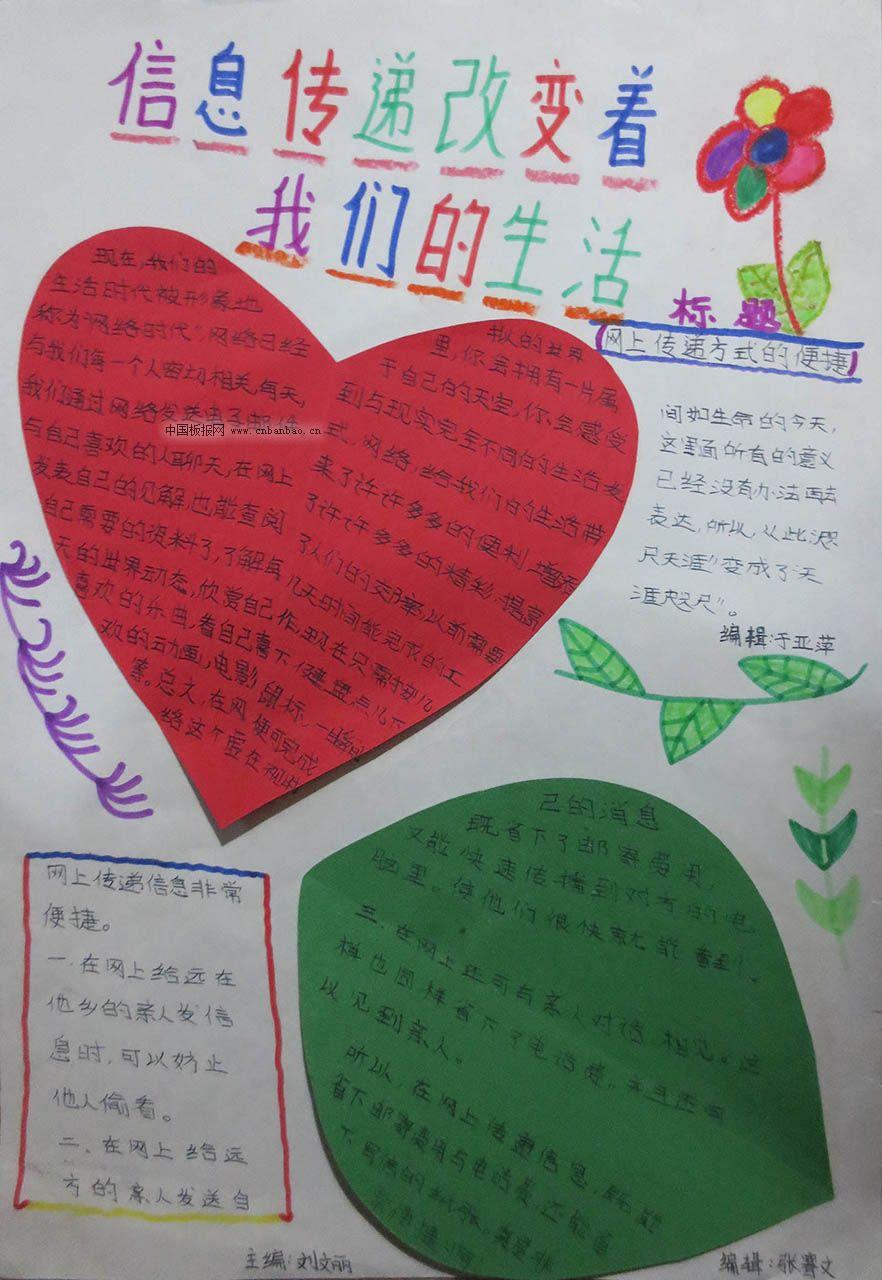 信息传递改变着
我们的生活
现在,我们的
生活时代被形象地
称为"网络时代",网络已经
与我们每一个人密切相关,每天,
我们通过网络发送电子邮件
中国板报网 www.cnbanbao.cn
与自己喜欢的人聊天,在网上
发表自己的见解,也能查阅
自己需要的资料了,了解每
天的世界动态,欣赏自己
喜欢的乐曲,看自己喜
欢的动画,电影
等。总之,在网
络这个虚
拟的世界
里,你会拥有一片属
于自己的天空,你会感受
到与现实完全不同的生活方
式。网络,给我们的生活带
来了许许多多的便利,增添
了许许多多的精彩,提高
了人们的效率,以前需要
几天时间能完成的工
作,现在只需按几
下键盘,点几下
鼠标,一瞬间
便可完成
标题
网上传递方式的便捷
间如生命的今天,
这里面所有的意义
已经没有办法再去
表达,所以,从此"咫
尺天涯"变成了"天
涯咫尺"。
编辑:于亚萍
网上传递信息非常
便捷。
一.在网上给远在
他乡的亲人发信
息时,可以妨止
他人偷看。
二、在网上给远
方的亲人发送自
己的消息
既省下了邮寄费用,
又能快速传播到对方的电
脑里。使他们很快就能看到。
三.在网上还可与亲人对话,相见。这
样也同样省下了电话费,并且还可
以见到亲人。
所以,在网上传递信息,既能
省下邮寄费用与电话费,还能省
主编:刘文丽
编辑:张赛文